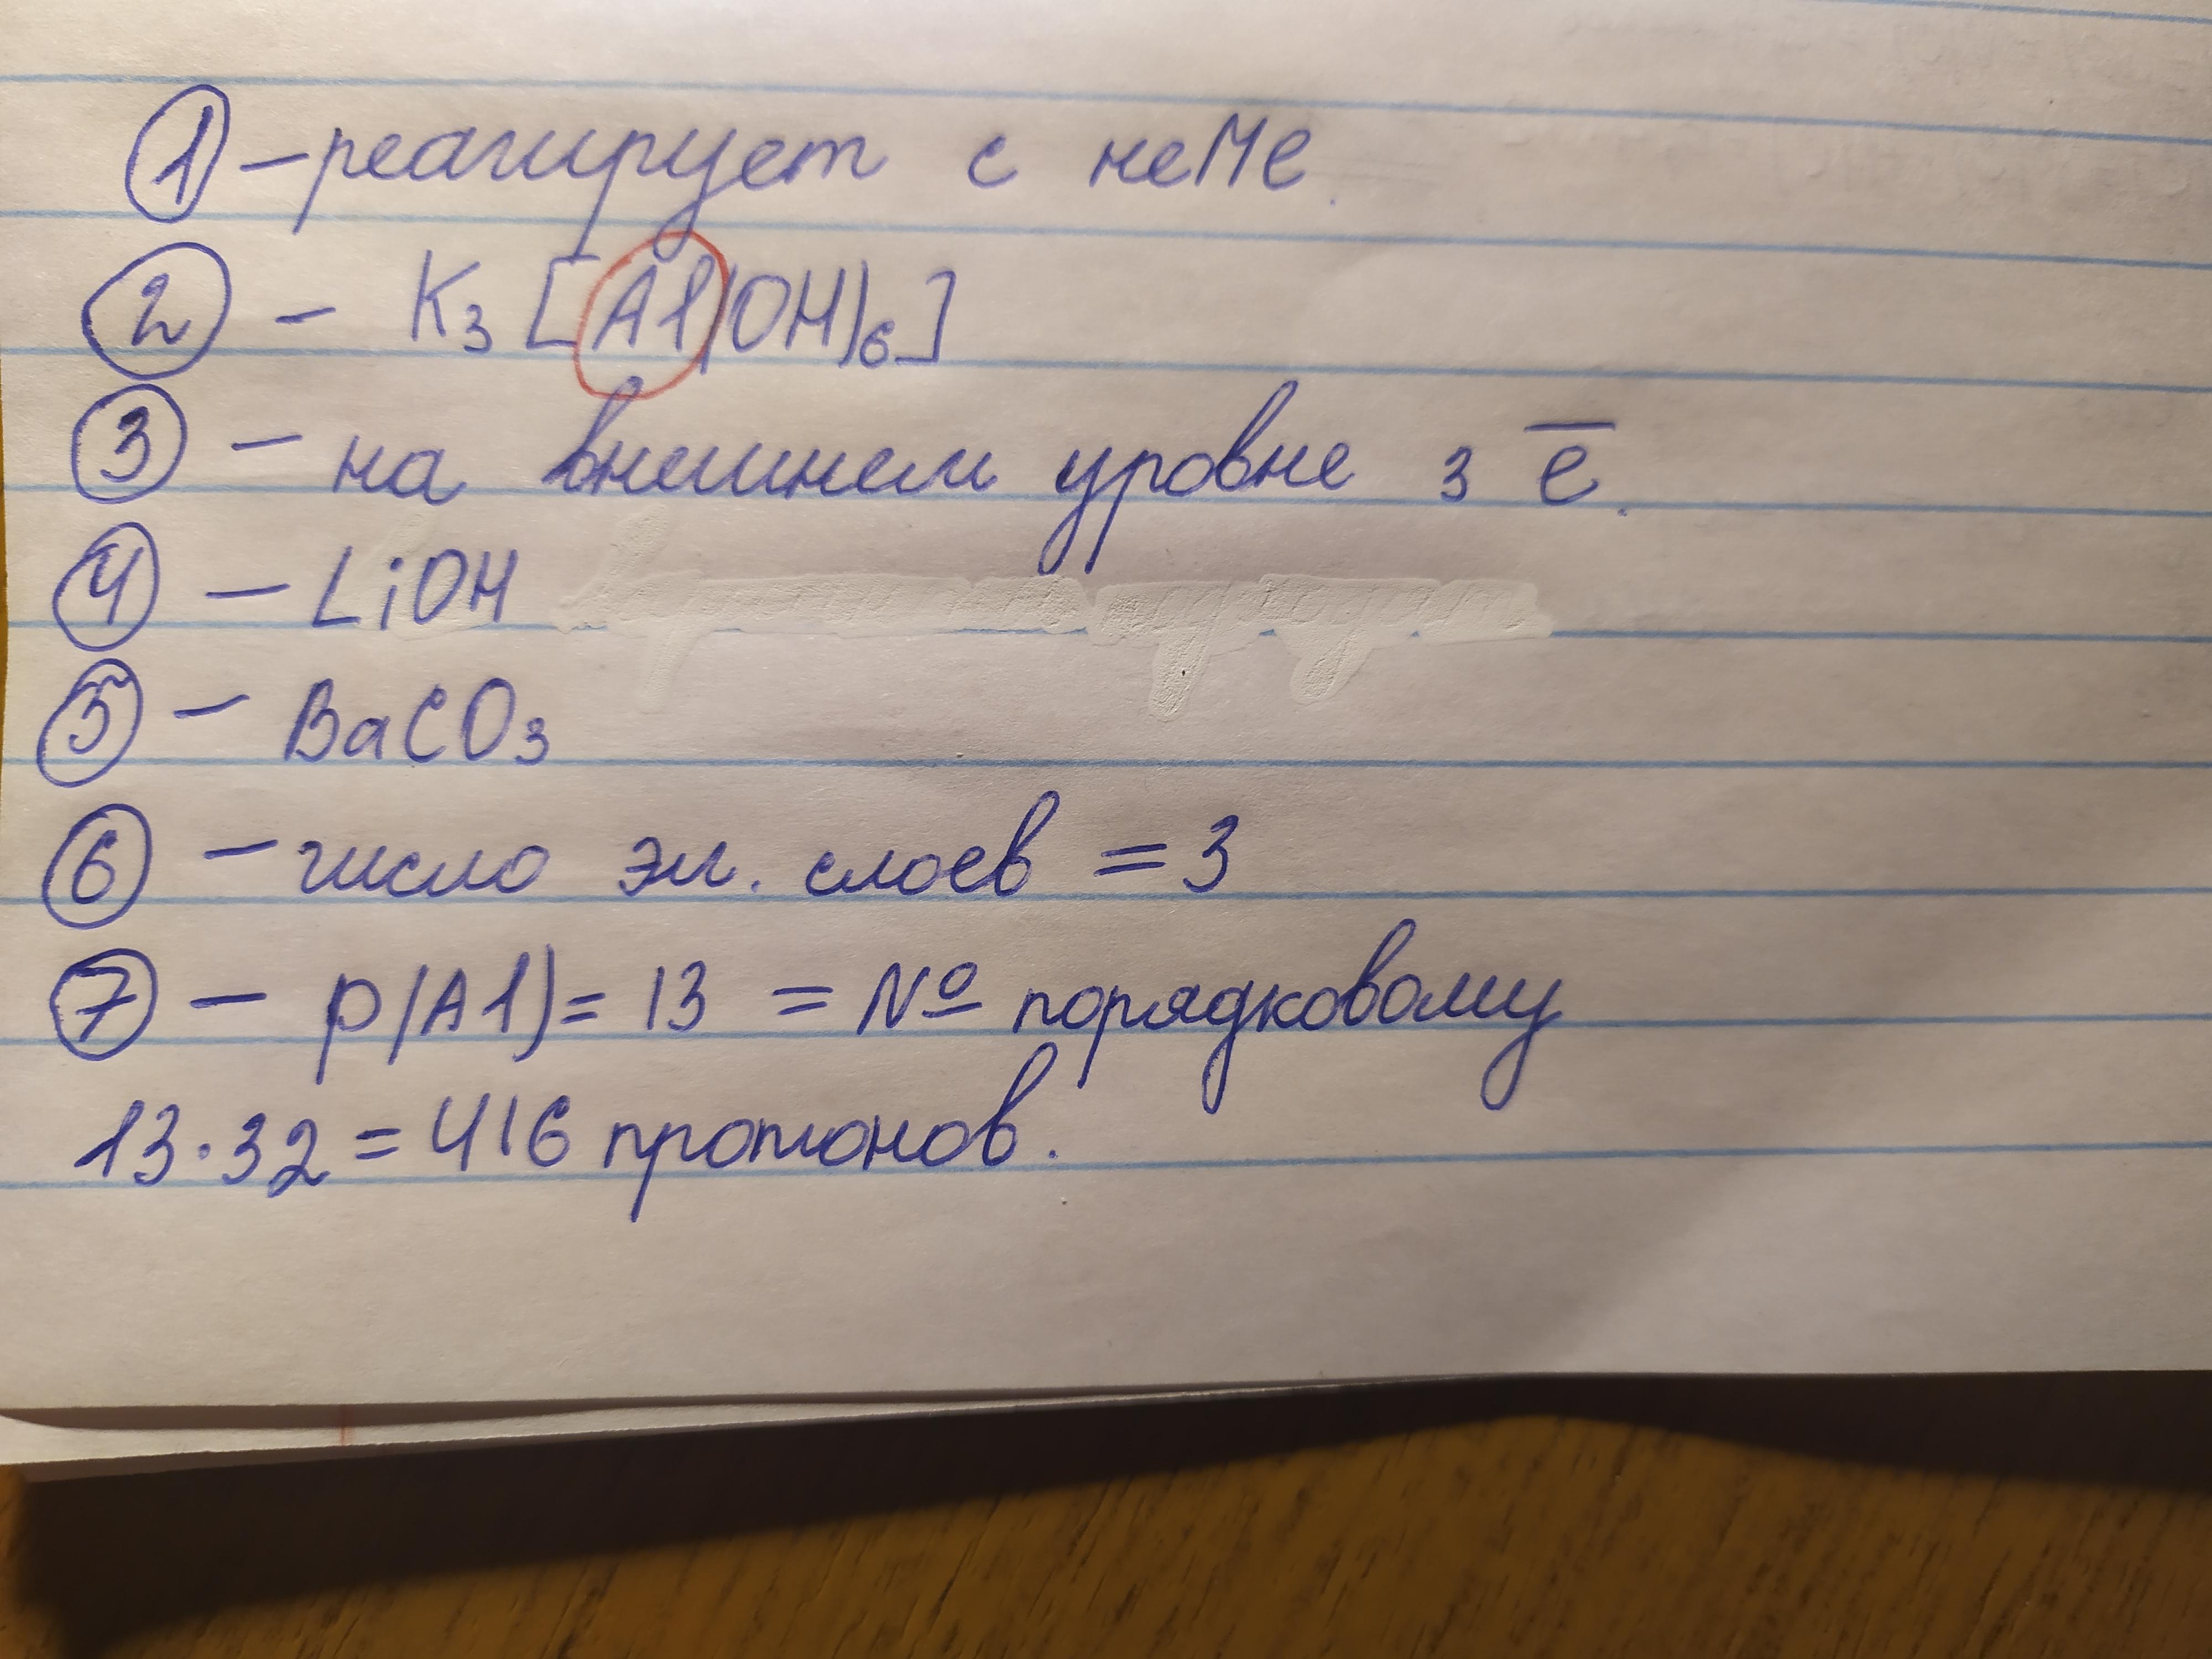 1 – реагирует с неМе.
2 – K3 [Al(OH)6]
3 – на внешнем уровне 3 e̅.
4 – LiOH
5 – BaCO3
6 – число эл. слоев = 3
7 – p(Al) = 13 = № порядковому
13·32 = 416 протонов.